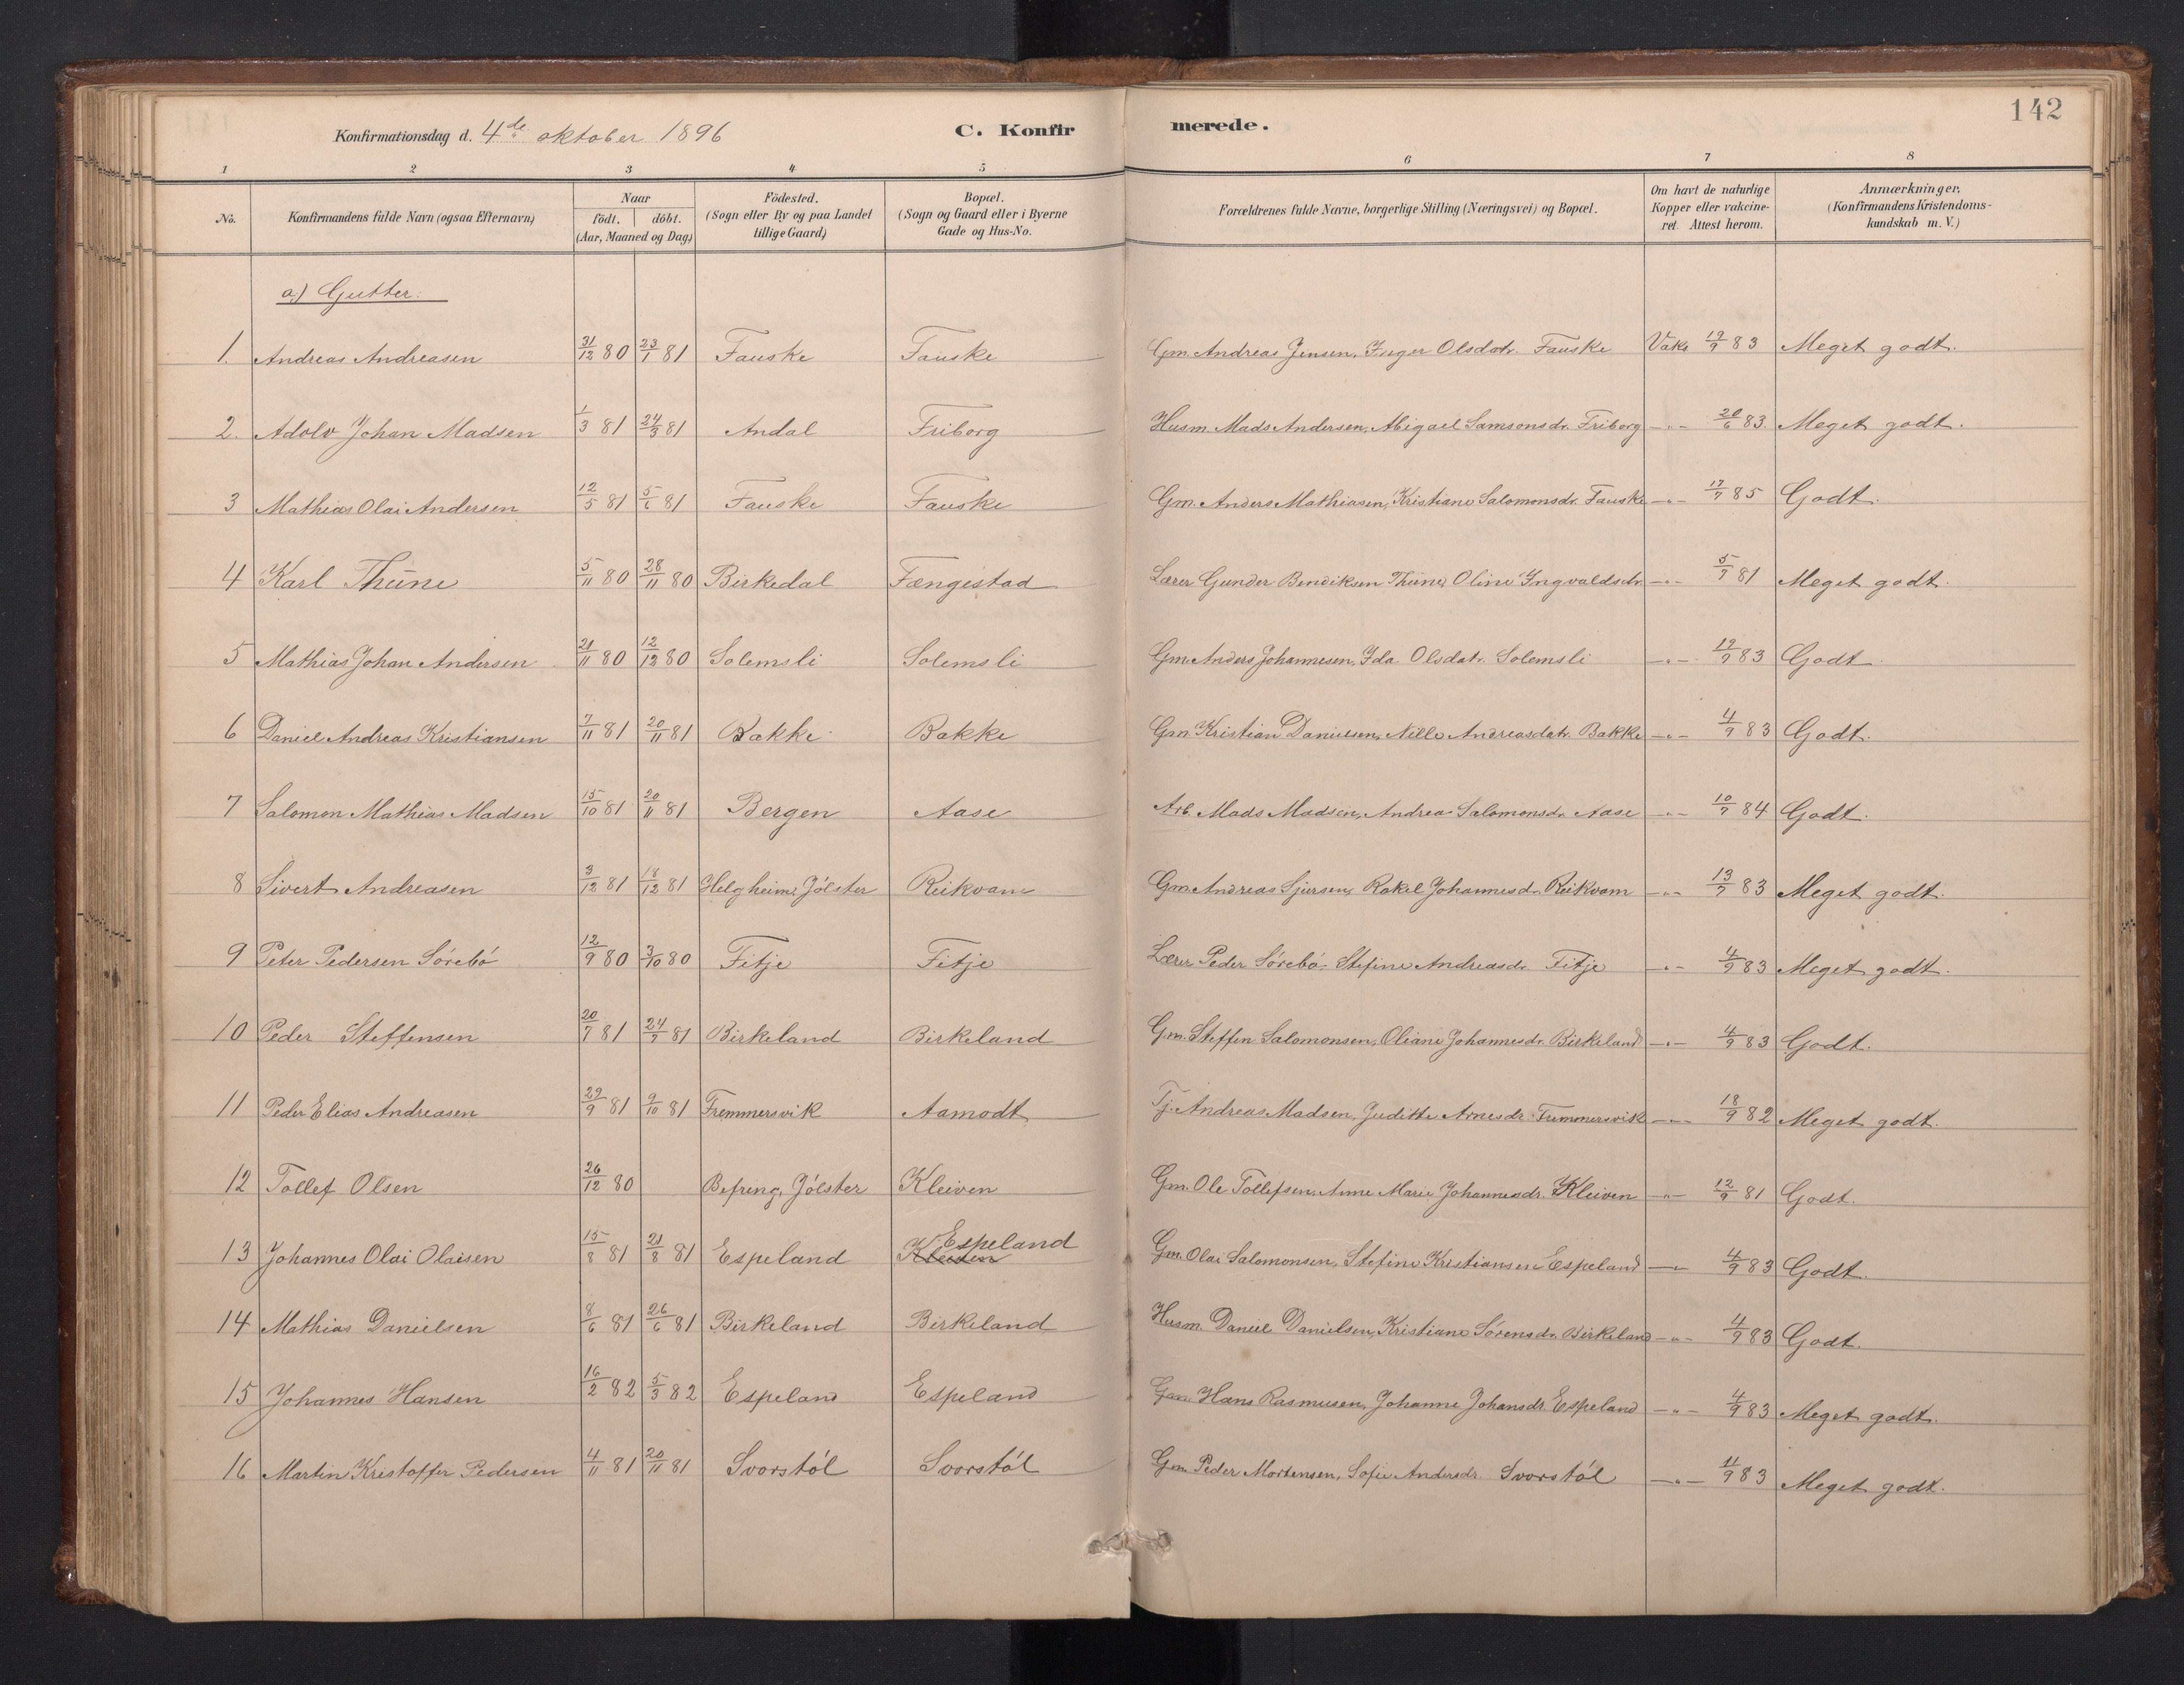 142
Konfirmationsdag d. 4de oktober 1896 C. Konfirmerede.
1 2 3 4 5 6 7 8
No. Konfirmandens fulde Navn (ogsaa Efternavn) Naar födt. döbt. (Aar, Maaned og Dag) Födested. (Sogn eller By og paa Landet tillige Gaard) Bopæl. (Sogn og Gaard eller i Byerne Gade og Hus-No. Forældrenes fulde Navne, borgerlige Stilling (Næringsvei) og Bopæl. Om havt de naturlige Kopper eller vakcineret. Attest herom. Anmærkninger. (Konfirmandens Kristendomskundskab m. V.)
a) Gutter:
1. Andreas Andreasen 31/12 80 23/1 81 Fauske Fauske Gm. Andreas Jensen, Inger Olsdatr. Fauske Vaks 19/9 83 Meget godt.
2. Adolv Johan Madsen 1/3 81 24/3 81 Andal Friborg Husm. Mads Andersen, Abigael Samsonsdr. Friborg -"- 20/6 83. Meget godt.
3 Mathias Olai Andersen 12/5 81 5/6 81 Fauske Fauske Gm. Anders Mathiasen, Kristiane Salomonsdr. Fauske -"- 17/7 85 Godt.
4 Karl Thüne 5/11 80 28/11 80 Birkedal Fængestad Lærer Gunder Bendiksen Thüne, Oline Yngvaldsdr. -"- 5/7 81 Meget godt.
5 Mathias Johan Andersen 21/11 80 12/12 80 Solemsli Solemsli Gm. Anders Johannesen, Ida Olsdatr. Solemsli -"- 19/9 83 Godt.
6 Daniel Andreas Kristiansen 7/11 81 20/11 81 Bakke Bakke Gm. Kristian Danielsen, Nille Andreasdatr. Bakke -"- 4/9 83 Godt.
7 Salomon Mathias Madsen 15/10 81 20/11 81 Bergen Aase Arb. Mads Madsen, Andrea Salomonsdr. Aase -"- 10/7 84 Godt.
8 Sivert Andreasen 3/12 81 18/12 81 Helgheim, Jölster Reikvam Gm Andreas Sjursen, Rakel Johannesdr. Reikvam -"- 13/7 83 Meget godt.
9 Peter Pedersen Sörebö 12/9 80 3/10 80 Fitje Fitje Lærer Peder Sörebö, Stefine Andreasdr. Fitje -"- 4/9 83 Meget godt.
10 Peder Steffensen 20/7 81 24/7 81 Birkeland Birkeland Gm. Steffen Salomonsen, Oliane Johannesdr. Birkeland -"- 4/9 83 Godt.
11 Peder Elias Andreasen 29/9 81 9/10 81 Fremmersvik Aamodt Tj. Andreas Madsen, Juditte Arnesdr. Fremmersvik -"- 18/9 82 Meget godt.
12 Tollef Olsen 26/12 80 Befreng, Jölster Kleiven Gm. Ole Tollefsen, Anne Marie Johannesdr. Kleiven -"- 12/9 81 Godt.
13 Johannes Olai Olaisen 15/8 81 21/8 81 Espeland Espeland Gm. Olai Salomonsen, Stefine Kristiansen Espeland -"- 4/9 83 Godt.
14 Mathias Danielsen 8/6 81 26/6 81 Birkeland Birkeland Husm. Daniel Danielsen, Kristiane Sörensdr. Birkeland -"- 4/9 83 Godt.
15 Johannes Hansen 16/2 82 5/3 82 Espeland Espeland Gm. Hans Rasmusen, Johanne Johansdr. Espeland -"- 4/9 83 Meget godt.
16 Martin Kristoffer Pedersen 4/11 81 20/11 81 Svorstöl Svorstöl Gm. Peder Mortensen, Sofie Andersdr. Svorstöl -"- 4/9 83 Meget godt.